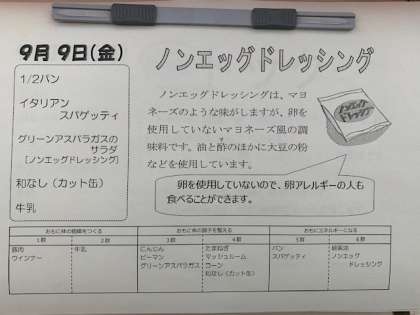 9月 9日(金)
ノンエッグドレッシング
1/2パン
イタリアン
スパゲッティ
グリーンアスパラガスの
サラダ
[ノンエッグドレッシング]
和なし(カット缶)
牛乳
ノンエッグドレッシングは、マヨ
ネーズのような味がしますが、卵を
使用していないマヨネーズ風の調
味料です。油と酢のほかに大豆の粉
などを使用しています。
ノンエッグ
ドレッシング
卵を使用していないので、卵アレルギーの人も
食べることができます。
おもに体の組織をつくる
おもに体の調子を整える
おもにエネルギーになる
1群 2群 3群 4群 5群 6群
豚肉
ウインナー
牛乳
にんじん
ピーマン
グリーンアスパラガス
たまねぎ
マッシュルーム
コーン
和なし(カット缶)
パン
スパゲッティ
ノンエッグ
ドレッシング